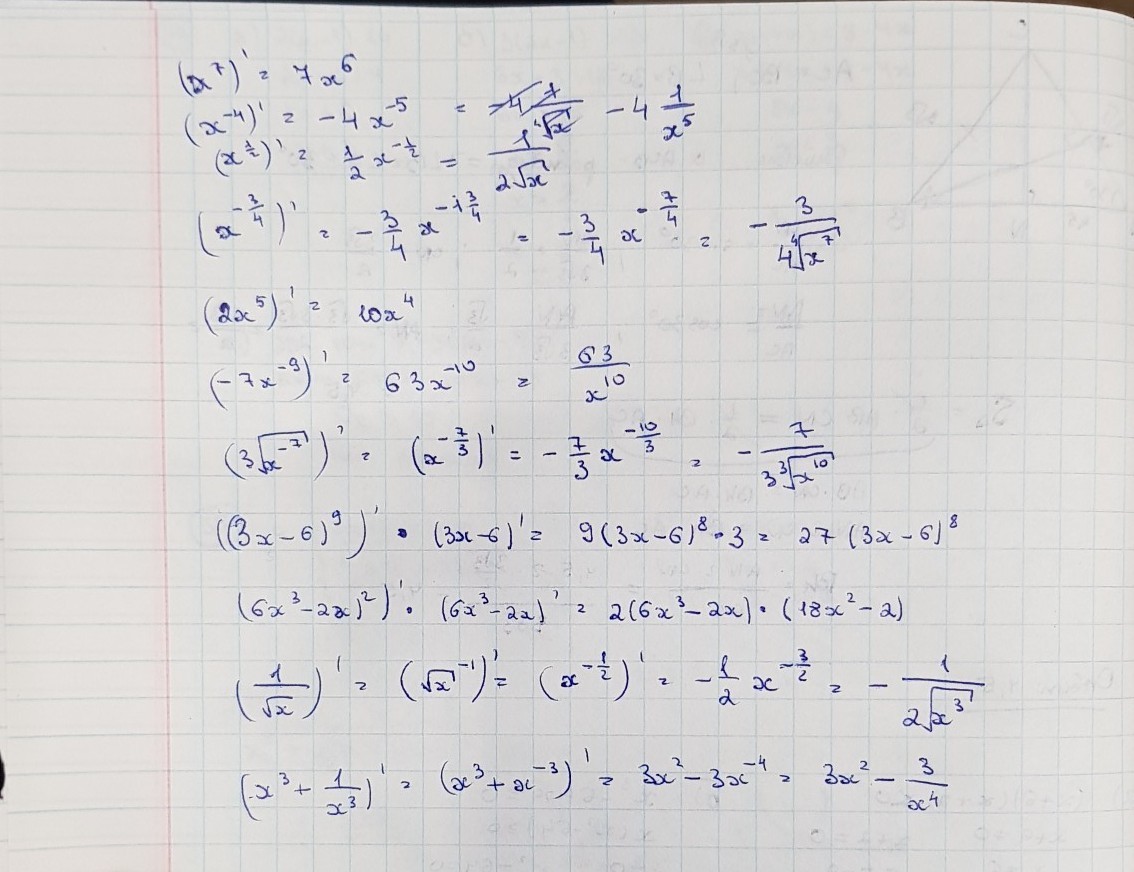 (x⁷)' = 7x⁶
(x⁻⁴)' = -4x⁻⁵ = -4 1/⁴√x -4 1/x⁵
(x^(1/2))' = 1/2 x^(-1/2) = 1/(2√x)
(x^(-3/4))' = -3/4 x^(-1 3/4) = -3/4 x^(-7/4) = -3/(4 ⁴√x⁷)
(2x⁵)' = 10x⁴
(-7x⁻⁹)' = 63x⁻¹⁰ = 63/x¹⁰
(3√x⁻⁷)' = (x^(-7/3))' = -7/3 x^(-10/3) = -7/(3 ³√x¹⁰)
((3x-6)⁹)' · (3x-6)' = 9(3x-6)⁸ · 3 = 27(3x-6)⁸
(6x³-2x)²)' · (6x³-2x)' = 2(6x³-2x) · (18x²-2)
(1/√x)' = (√x⁻¹)' = (x^(-1/2))' = -1/2 x^(-3/2) = -1/(2√x³)
(x³ + 1/x³)' = (x³ + x⁻³)' = 3x² - 3x⁻⁴ = 3x² - 3/x⁴